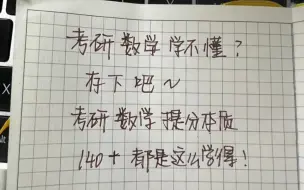 考研数学学不懂？
存下吧~
考研数学提分本质
140+都是这么学得！